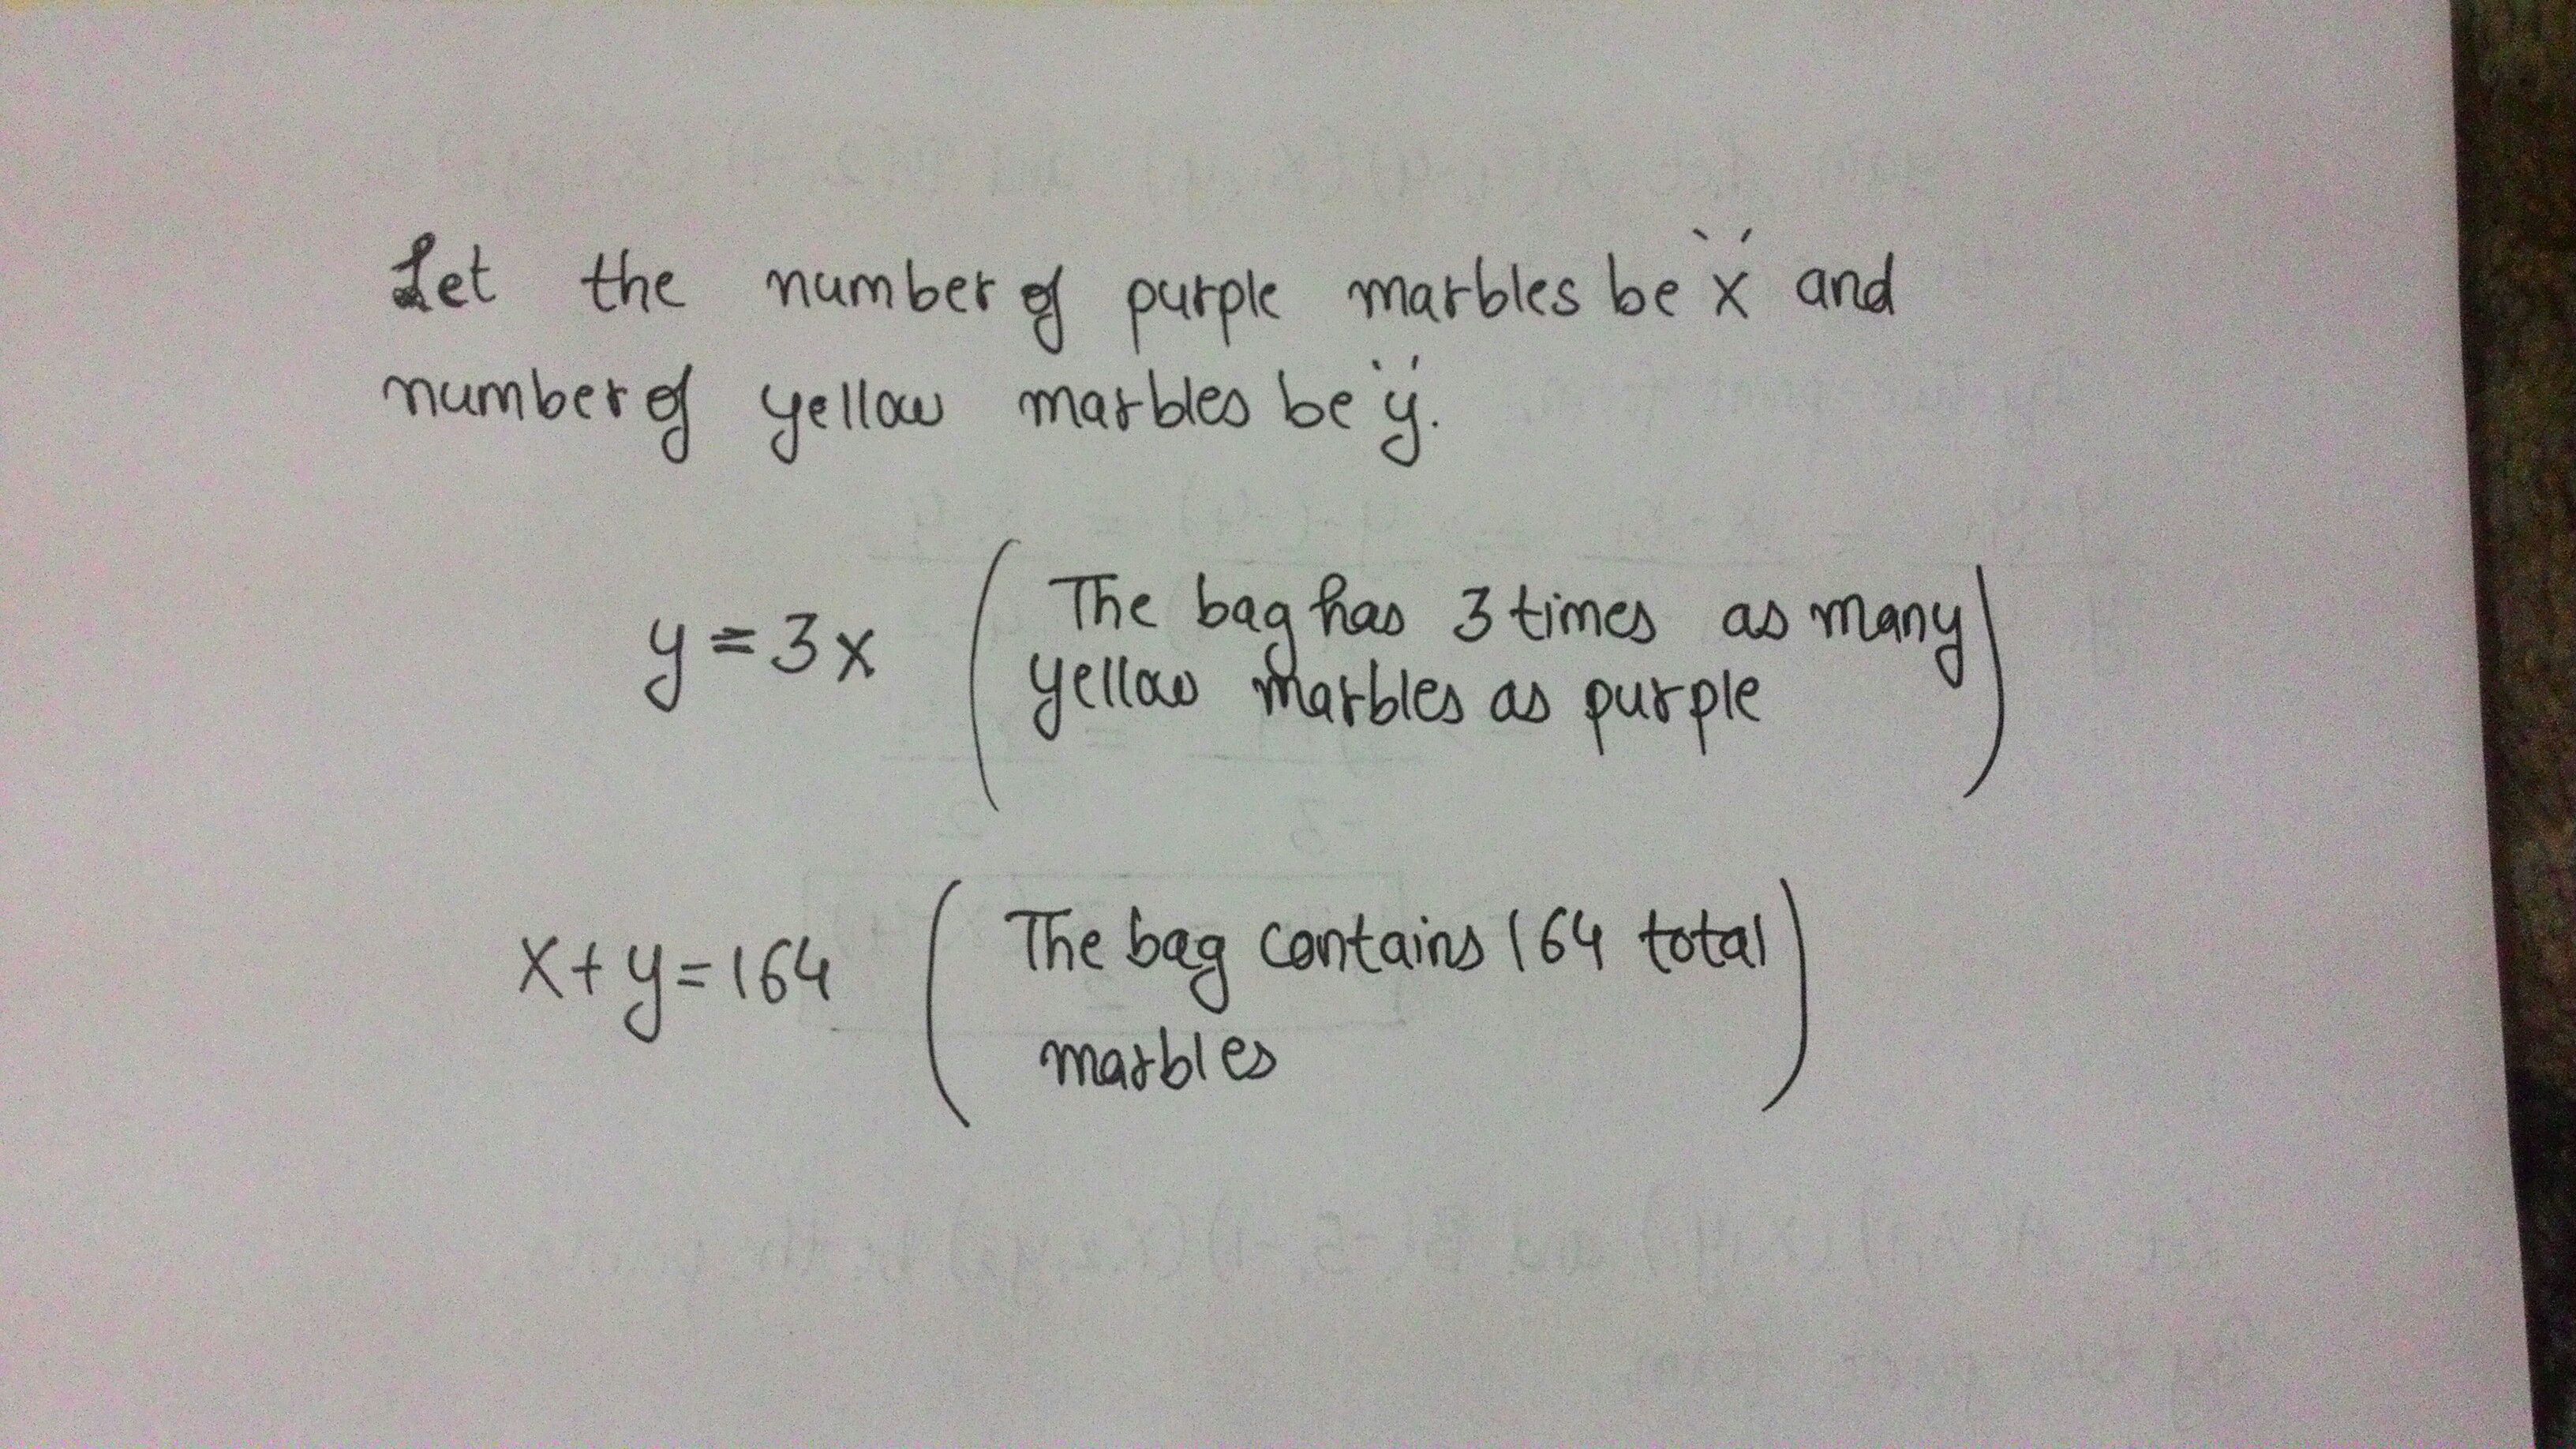 Let the number of purple marbles be `x´ and
number of yellow marbles be `y´.
y = 3x (The bag has 3 times as many
yellow marbles as purple)
x + y = 164 (The bag contains 164 total
marbles)